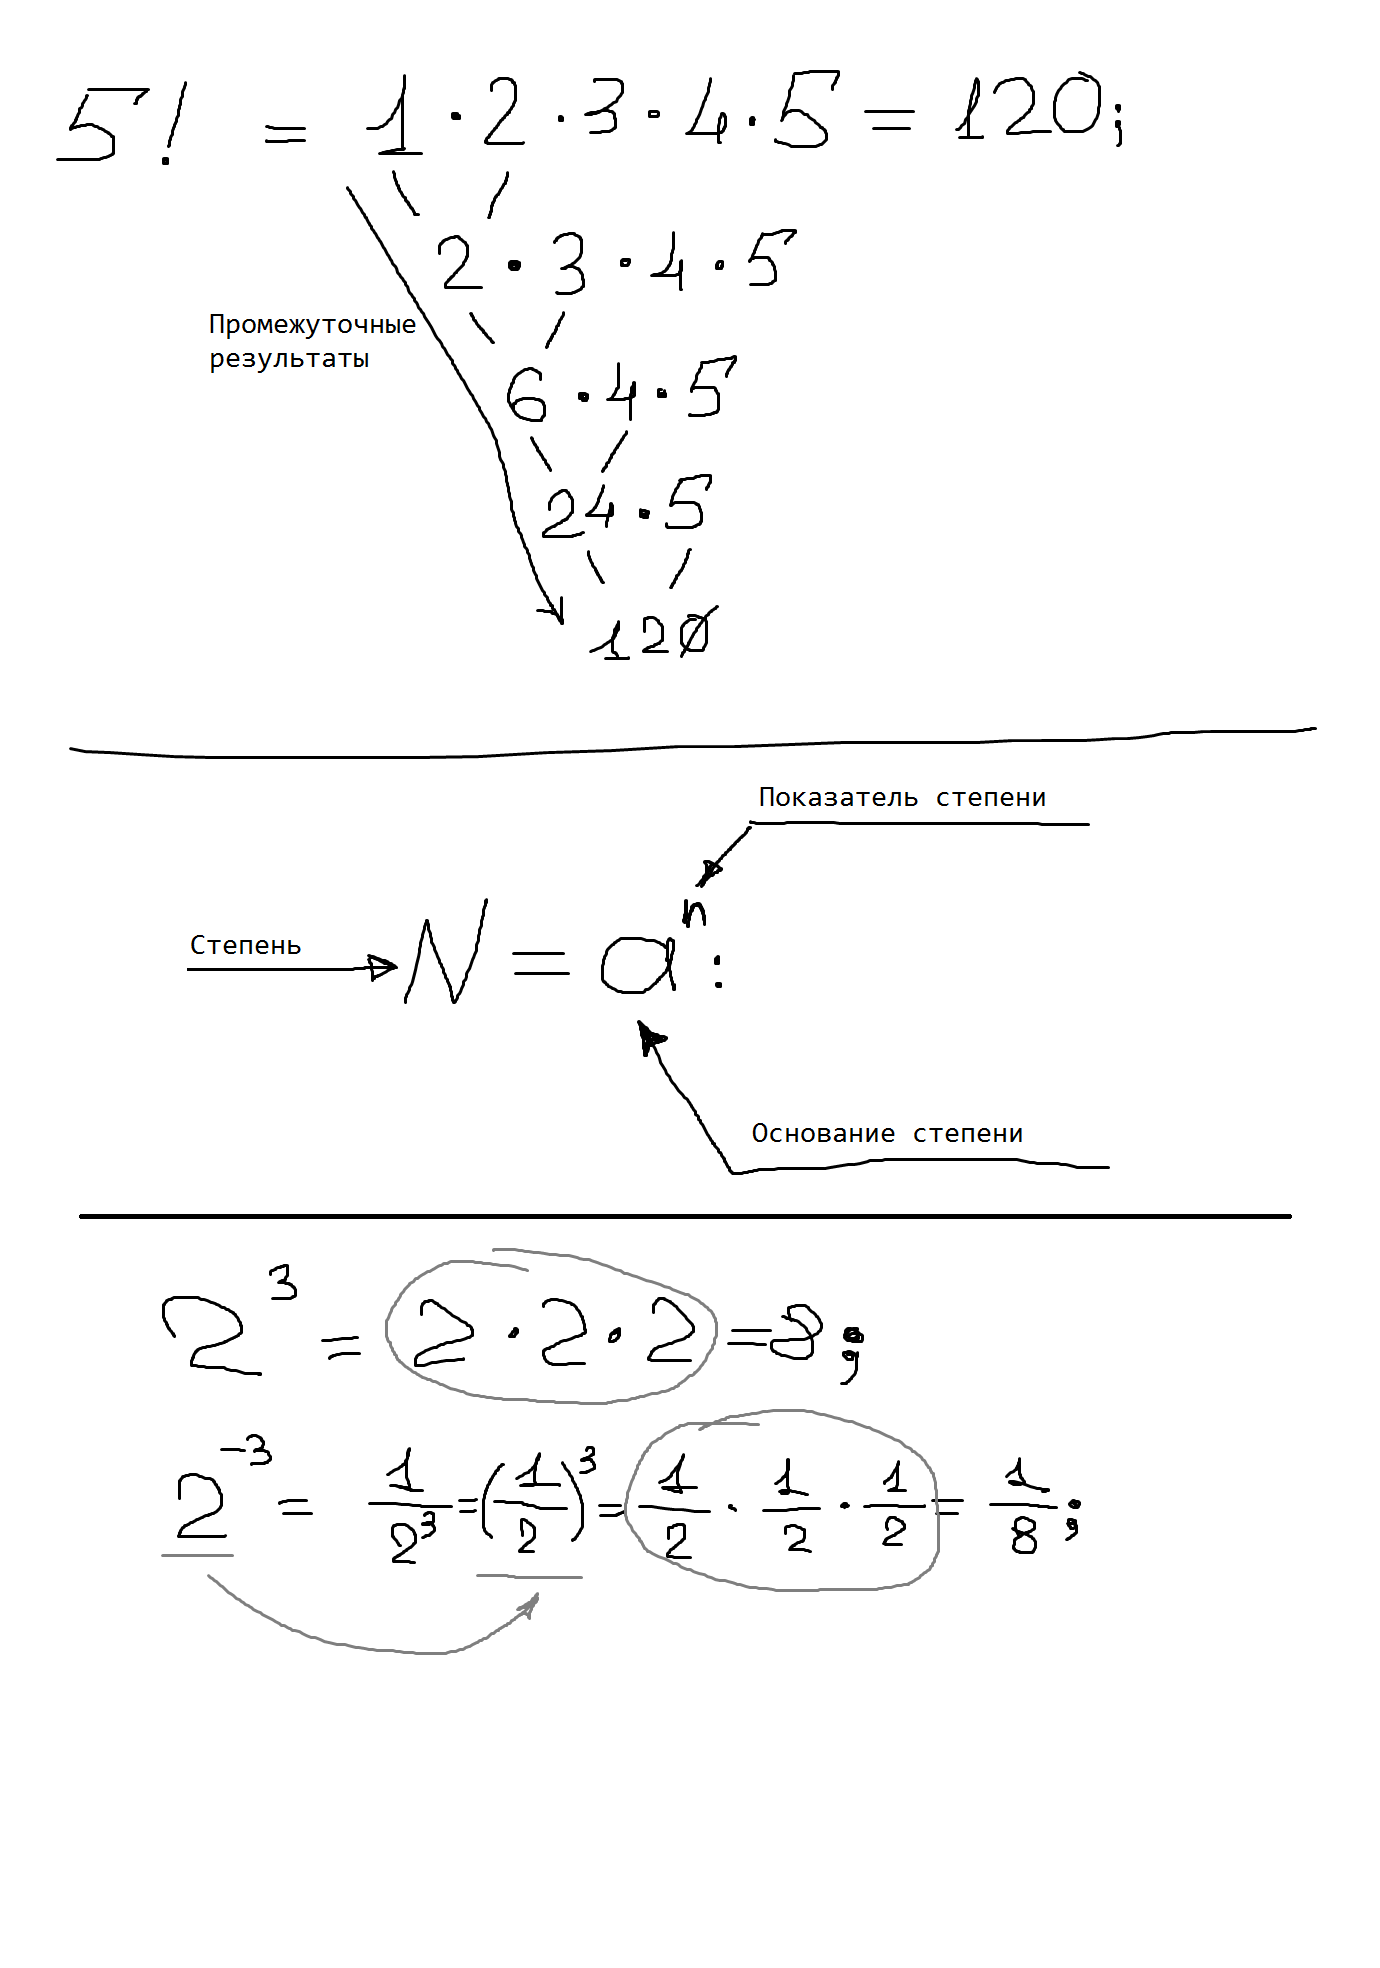 5! = 1 · 2 · 3 · 4 · 5 = 120;
2 · 3 · 4 · 5
Промежуточные
результаты
6 · 4 · 5
24 · 5
120
Показатель степени
Степень
N = aⁿ:
Основание степени
2³ = 2 · 2 · 2 = 8;
2⁻³ = 1/2³ = (1/2)³ = 1/2 · 1/2 · 1/2 = 1/8;